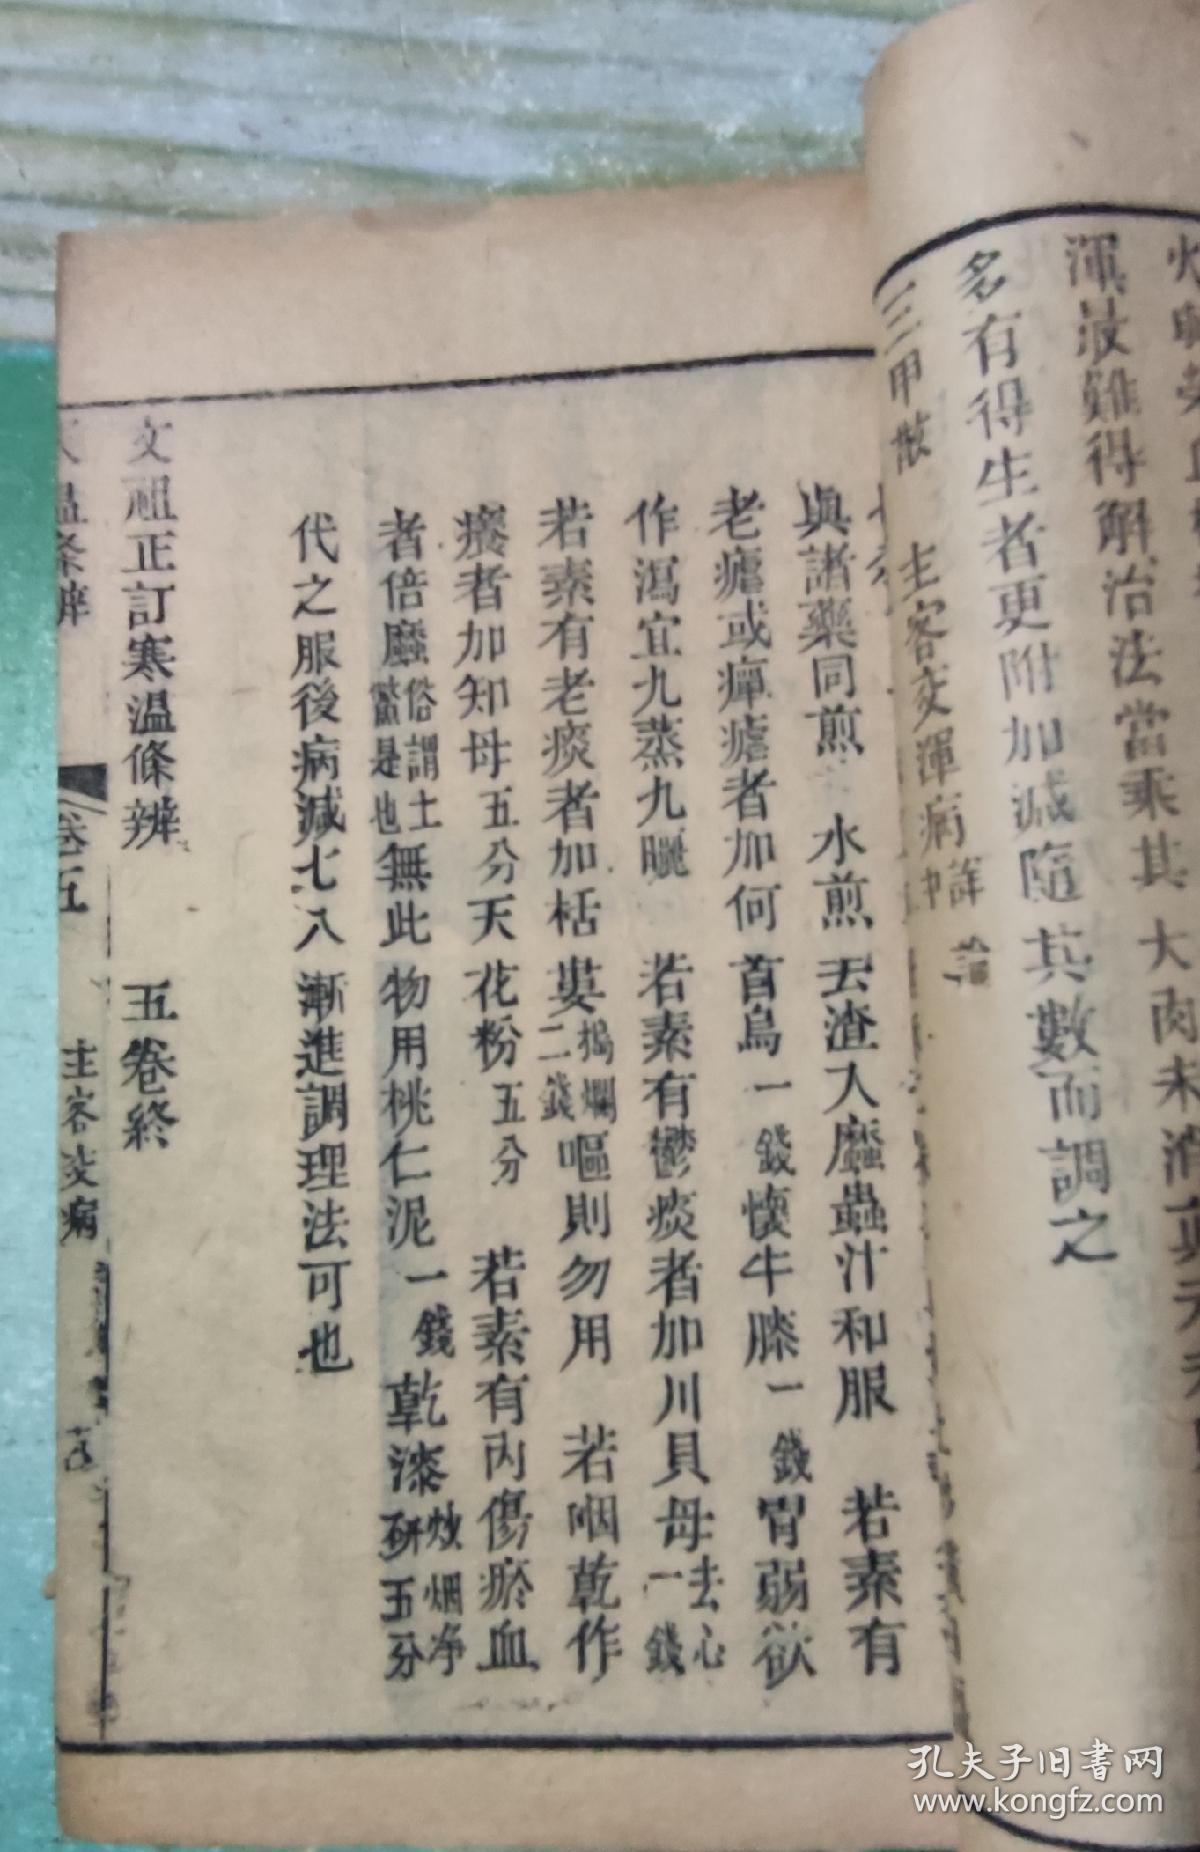 渾最難得解治法當乘其大肉未消真元未
多有得生者更附加減隨其數而調之
三甲散　主客交渾病詳論中
與諸藥同煎　水煎去渣入䗪蟲汁和服　若素有
老瘧或癉瘧者加何首烏一錢懷牛膝一錢胃弱欲
作瀉宜九蒸九曬　若素有鬱痰者加川貝母去心一錢
若素有老痰者加栝蔞搗爛二錢嘔則勿用　若咽乾作
癢者加知母五分天花粉五分　若素有內傷瘀血
者倍䗪俗謂土鱉是也無此物用桃仁泥一錢乾漆炒烟净研五分
代之服後病減七八漸進調理法可也
文祖正訂寒溫條辨　五卷終
溫條辨　卷五　主客交病
孔夫子旧书网
www.kongfz.com